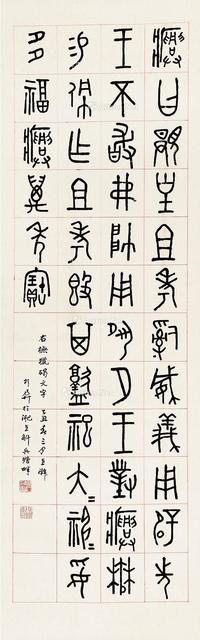 𤼈曰覭皇且考𤔲威義用辟先
王不敢弗帥用夙夕王對𤼈楙
易佩乍且考𣪘其盭祀大=神=妥
多福𤼈萬年寶
右橅文字乙丑春三月上澣